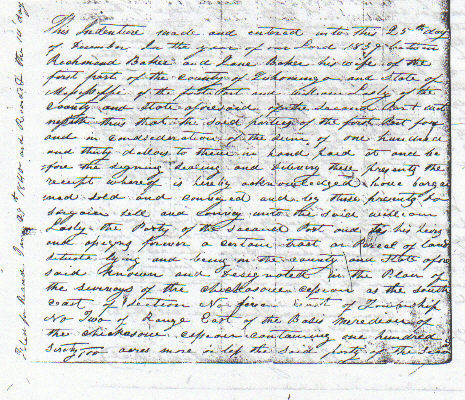 This Indenture made and entered into this 25th day
of December In the year of our Lord 1839 between
Richmond Baker and Jane Baker his wife of the
first part of the County of Tishomingo and State of
Mississippi of the first part and William Lasly of the
County and State aforesaid of the Second Part
that the said parties of the first Part for
and in of the sum of one hundred
and thirty dollars to them in hand paid at and be
fore the signing sealing and these presents the
receipt whereof is hereby acknowledged have bargai
ned sold and conveyed and by these presents do
bargain sell and convey unto the said William
Lasly the Party of the Second Part and his heirs
and forever a certain tract or Parcel of land
lying and being in the county and State afore
said Known and Designated in the Plan of
the surveys of the Chickasaw as the South
East of Section No East of Township
No Two of Range East of the Basis Meredian of
the Chickasaw containing one hundred &
Sixty acres more or less the said party of the
Filed for Record Jany 23rd 1840 and Recorded the 10 day